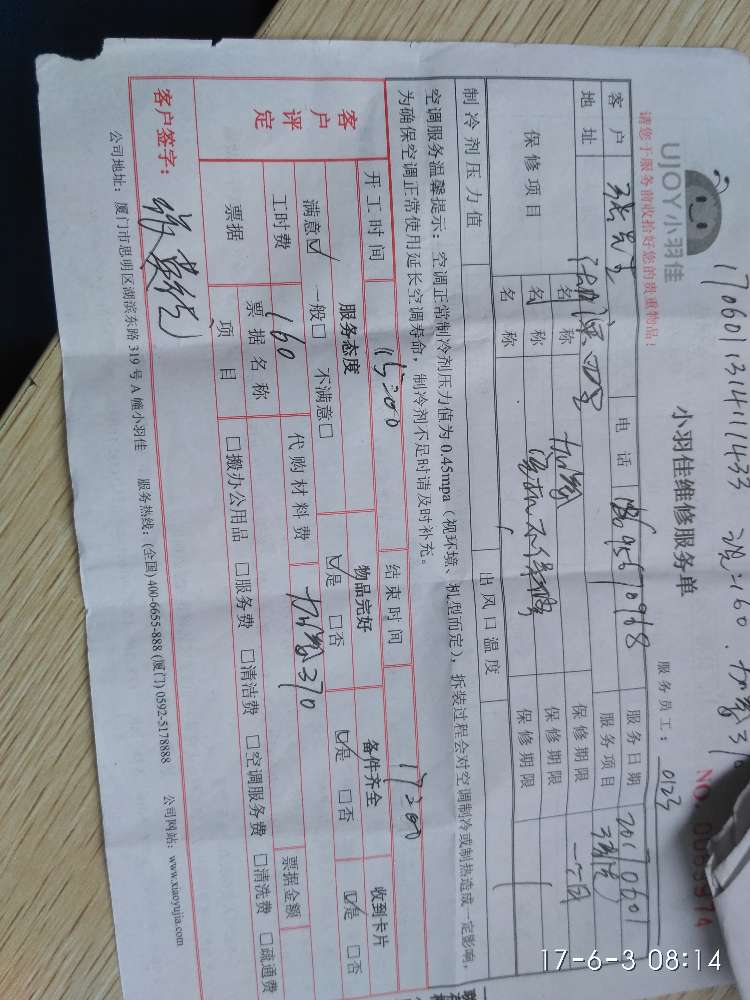 170601131411433 160. 加氨370
UJOY小羽佳
小羽佳维修服务单
NO. 0069974
请您于服务前收拾好您的贵重物品！
服务员工：0123
客户 张先生 电话 服务日期 20170601
地址 服务项目
保修项目 名称 加氨 保修期限 一个月
名称 保修期限
名称 保修期限
制冷剂压力值 出风口温度
空调服务温馨提示：空调正常制冷剂压力值为0.45mpa（视环境、机型而定），拆装过程会对空调制冷或制热造成一定影响，
为确保空调正常使用延长空调寿命，制冷剂不足时请及时补充。
客户评定
开工时间 15:00 结束时间 17:00
服务态度 物品完好 备件齐全 收到卡片
满意☑ 一般□ 不满意□ ☑是 □否 ☑是 □否 ☑是 □否
工时费 160 代购材料费 加氨370
票据 票据名称 票据金额
项目 □搬办公用品 □服务费 □清洁费 □空调服务费 □清洗费 □疏通费
客户签字：
公司地址：厦门市思明区湖滨东路319号A幢小羽佳 服务热线：(全国) 400-6655-888 (厦门) 0592-5178888 公司网站：www.xiaoyujia.com
17-6-3 08:14